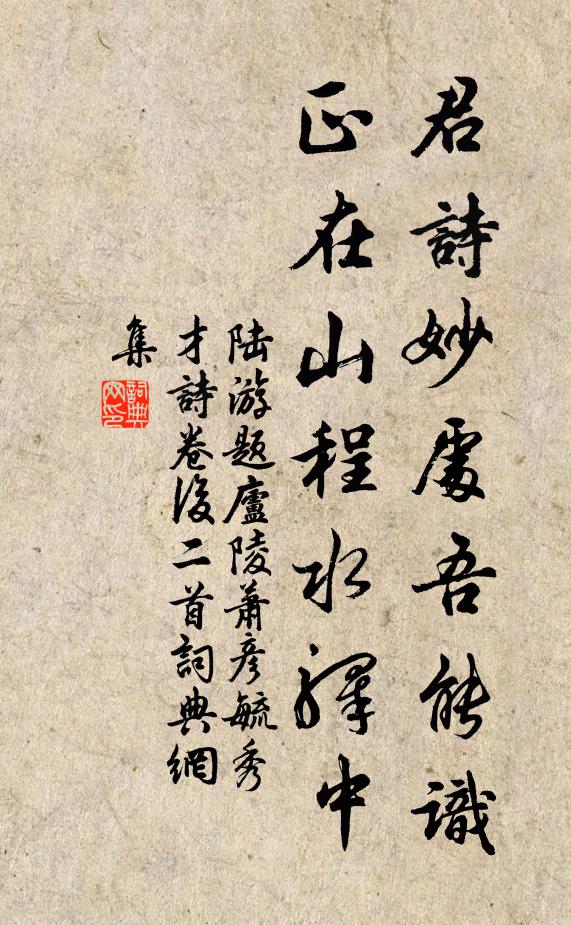 君詩妙處吾能識
正在山程水驛中
陆游題廬陵蕭彦毓秀
才詩卷後二首詞典網
集
詞典
网印